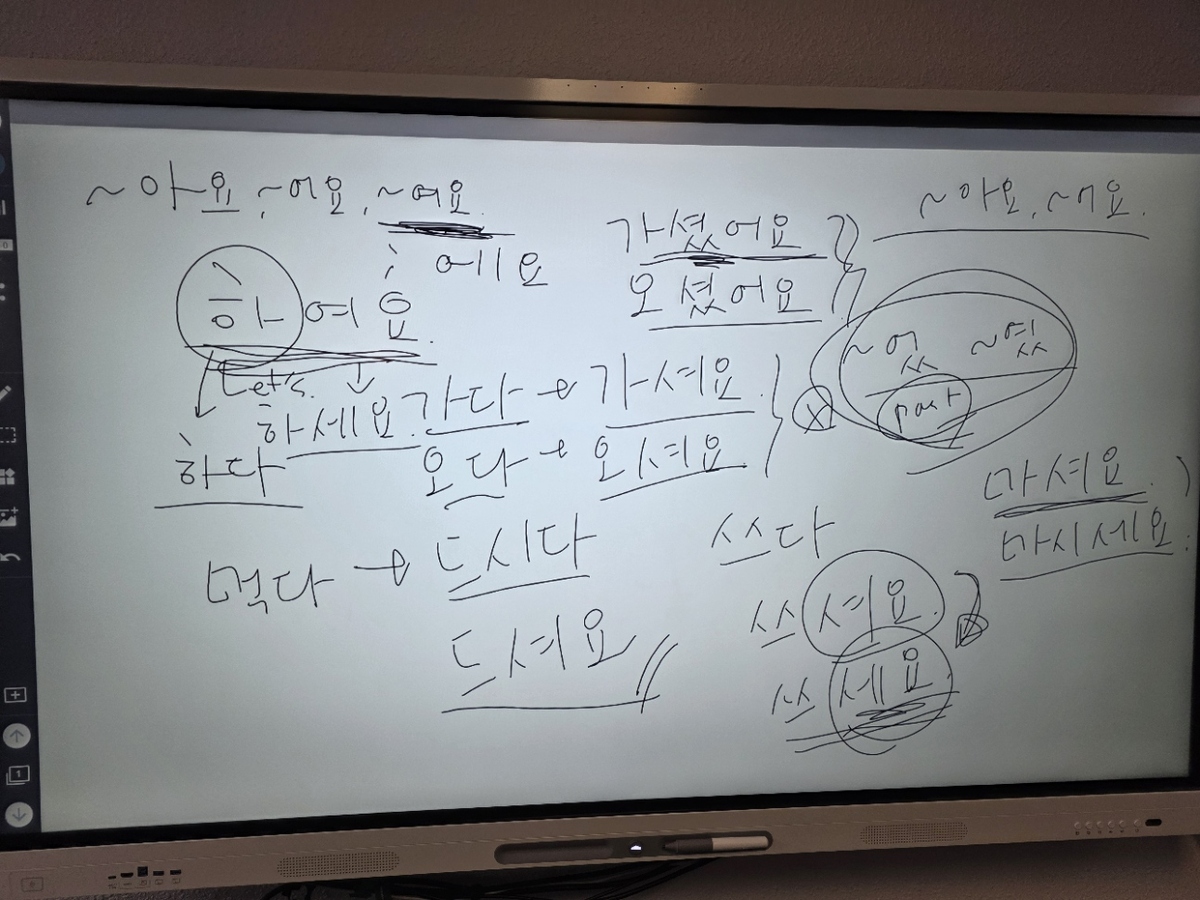 ~아요, ~어요, ~여요.
에요
하여요.
Let's.
하세요.
하다
가셨어요
오셨어요
~아요, ~어요.
~었 ~였
past
가다 → 가셔요.
오다 → 오셔요
먹다 → 드시다
드셔요
쓰다
쓰셔요.
쓰세요.
마셔요.
마시세요.